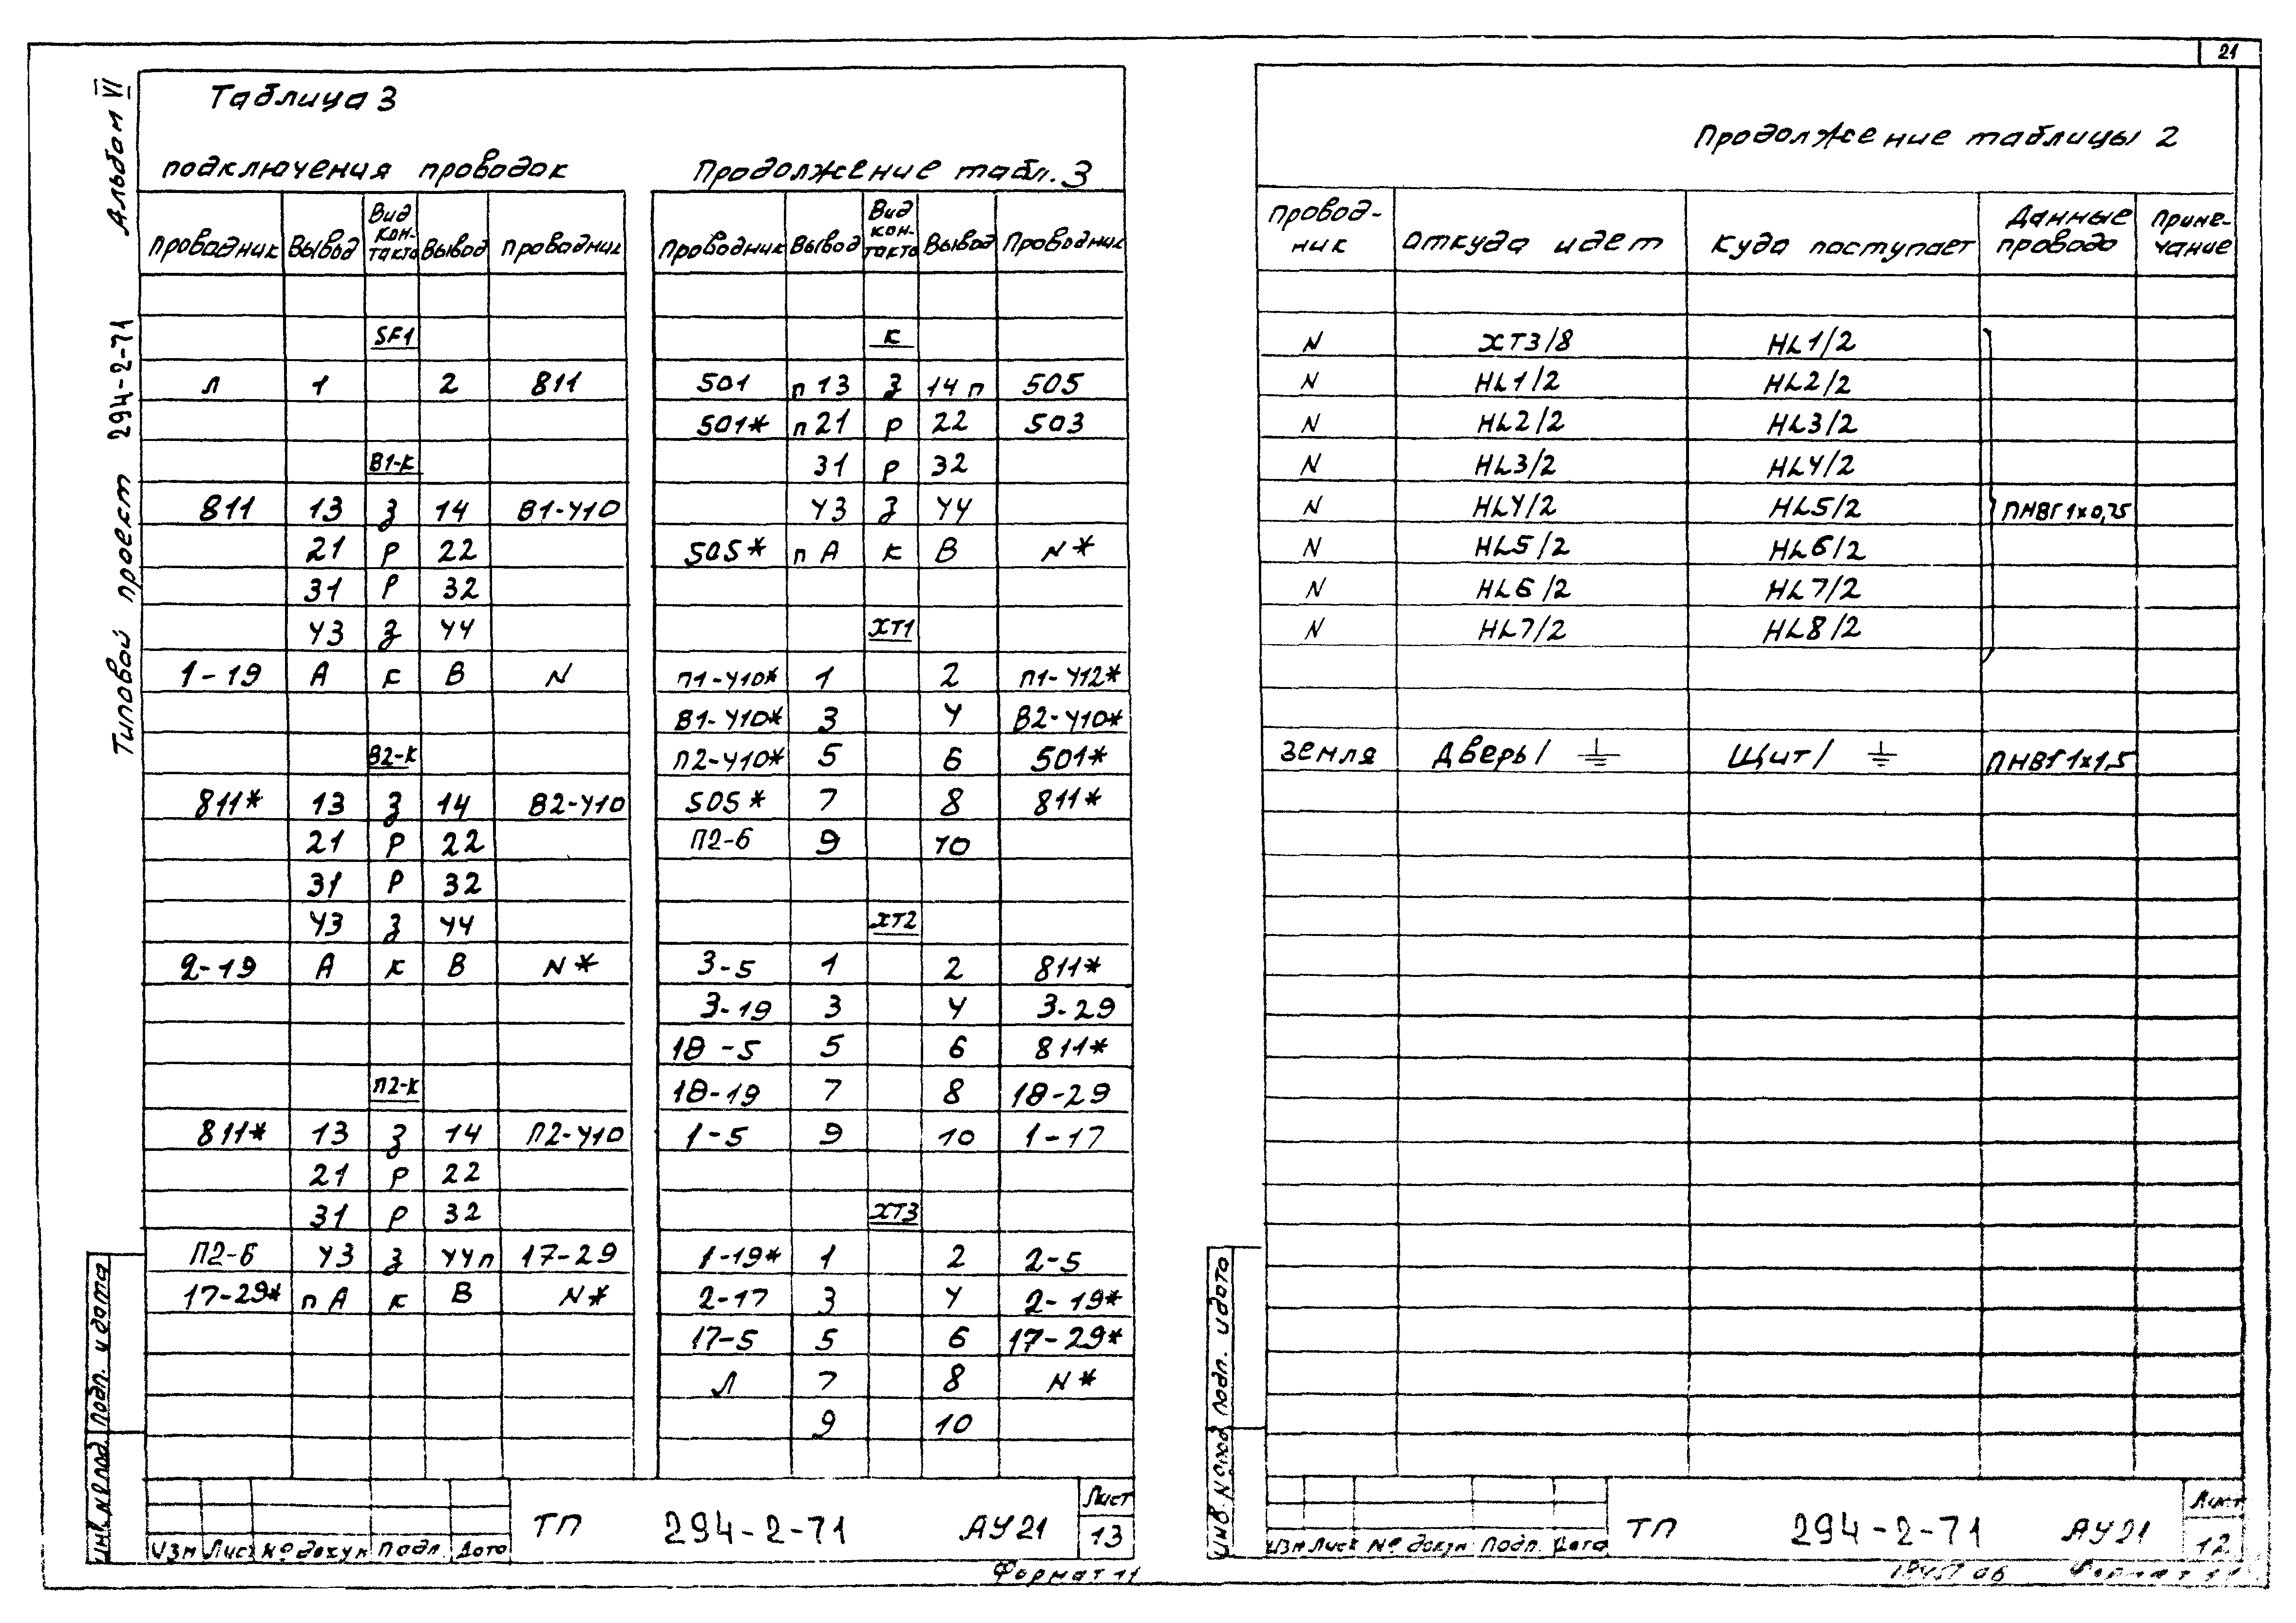 21
Альбом VI
Типовой проект 294-2-71
Таблица 3
подключения проводок
Проводник Вывод Вид контакта Вывод Проводник
SF1
Л 1 2 811
В1-К
811 13 З 14 В1-У10
21 Р 22
31 Р 32
43 З 44
1-19 А К В N
В2-К
811* 13 З 14 В2-У10
21 Р 22
31 Р 32
43 З 44
2-19 А К В N*
П2-К
811* 13 З 14 П2-У10
21 Р 22
31 Р 32
П2-6 43 З 44п 17-29
17-29* пА К В N*
Продолжение табл. 3
Проводник Вывод Вид контакта Вывод Проводник
К
501 п13 З 14п 505
501* п21 Р 22 503
31 Р 32
43 З 44
505* пА К В N*
ХТ1
П1-У10* 1 2 П1-У12*
В1-У10* 3 4 В2-У10*
П2-У10* 5 6 501*
505* 7 8 811*
П2-6 9 10
ХТ2
3-5 1 2 811*
3-19 3 4 3-29
18-5 5 6 811*
18-19 7 8 18-29
1-5 9 10 1-17
ХТ3
1-19* 1 2 2-5
2-17 3 4 2-19*
17-5 5 6 17-29*
Л 7 8 N*
9 10
Инв. № под. Подп. и дата
Изм Лист № докум Подп. Дата
ТП 294-2-71 АУ21
Лист
13
Формат 11
Продолжение таблицы 2
Провод-
ник Откуда идет Куда поступает Данные провода Приме-
чание
N ХТ3/8 HL1/2
N HL1/2 HL2/2
N HL2/2 HL3/2
N HL3/2 HL4/2
N HL4/2 HL5/2 ПНВГ 1х0,75
N HL5/2 HL6/2
N HL6/2 HL7/2
N HL7/2 HL8/2
Земля Дверь/ ⏚ Щит/ ⏚ ПНВГ 1х1,5
Инв. № под. Подп. и дата
Изм Лист № докум Подп. Дата
ТП 294-2-71 АУ21
Лист
12
Формат 11